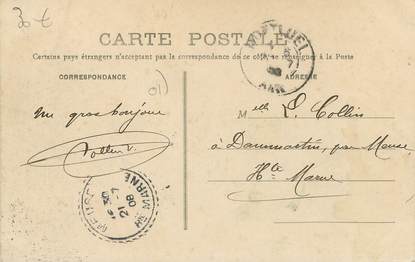 30 €
CARTE POSTALE
Certains pays étrangers n'acceptant pas la correspondance de ce côté, se renseigner à la Poste
CORRESPONDANCE
ADRESSE
Un gros bonjour
Melle L. Collin
à Dammartin, par Meuse
Hte Marne
MONTLUEL
AIN
MEUSE
21-7
08
Hte MARNE